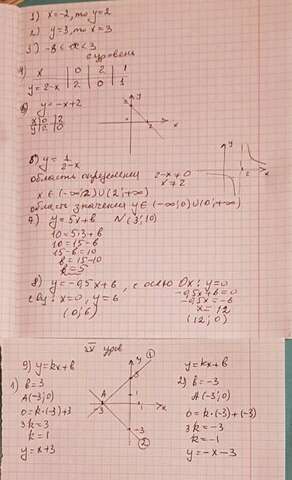 1) x=-2, то y=2
2) y=3, то x=3
3) -8 < x < 3
2 уровень
4) x | 0 | 2 | 1
y=2-x | 2 | 0 | 1
y=-x+2
x | 0 | 2
y | 2 | 0
y
2
x
6) y=1/(2-x)
область определения 2-x≠0
x≠2
x∈(-∞;2)∪(2;+∞)
область значения y∈(-∞;0)∪(0;+∞)
7) y=5x+b N(3;10)
10=5·3+b
10=15-b
15-b=10
b=15-10
b=5
8) y=-0,5x+6, с осью Ox: y=0
-0,5x+6=0
-0,5x=-6
x=12
(12;0)
с Oy: x=0, y=6
(0;6)
IV уров
9) y=kx+b
1) b=3
A(-3;0)
0=k·(-3)+3
3k=3
k=1
y=x+3
y
1
3
A
-3
1
x
-3
2
y=kx+b
2) b=-3
A(-3;0)
0=k·(-3)+(-3)
3k=-3
k=-1
y=-x-3